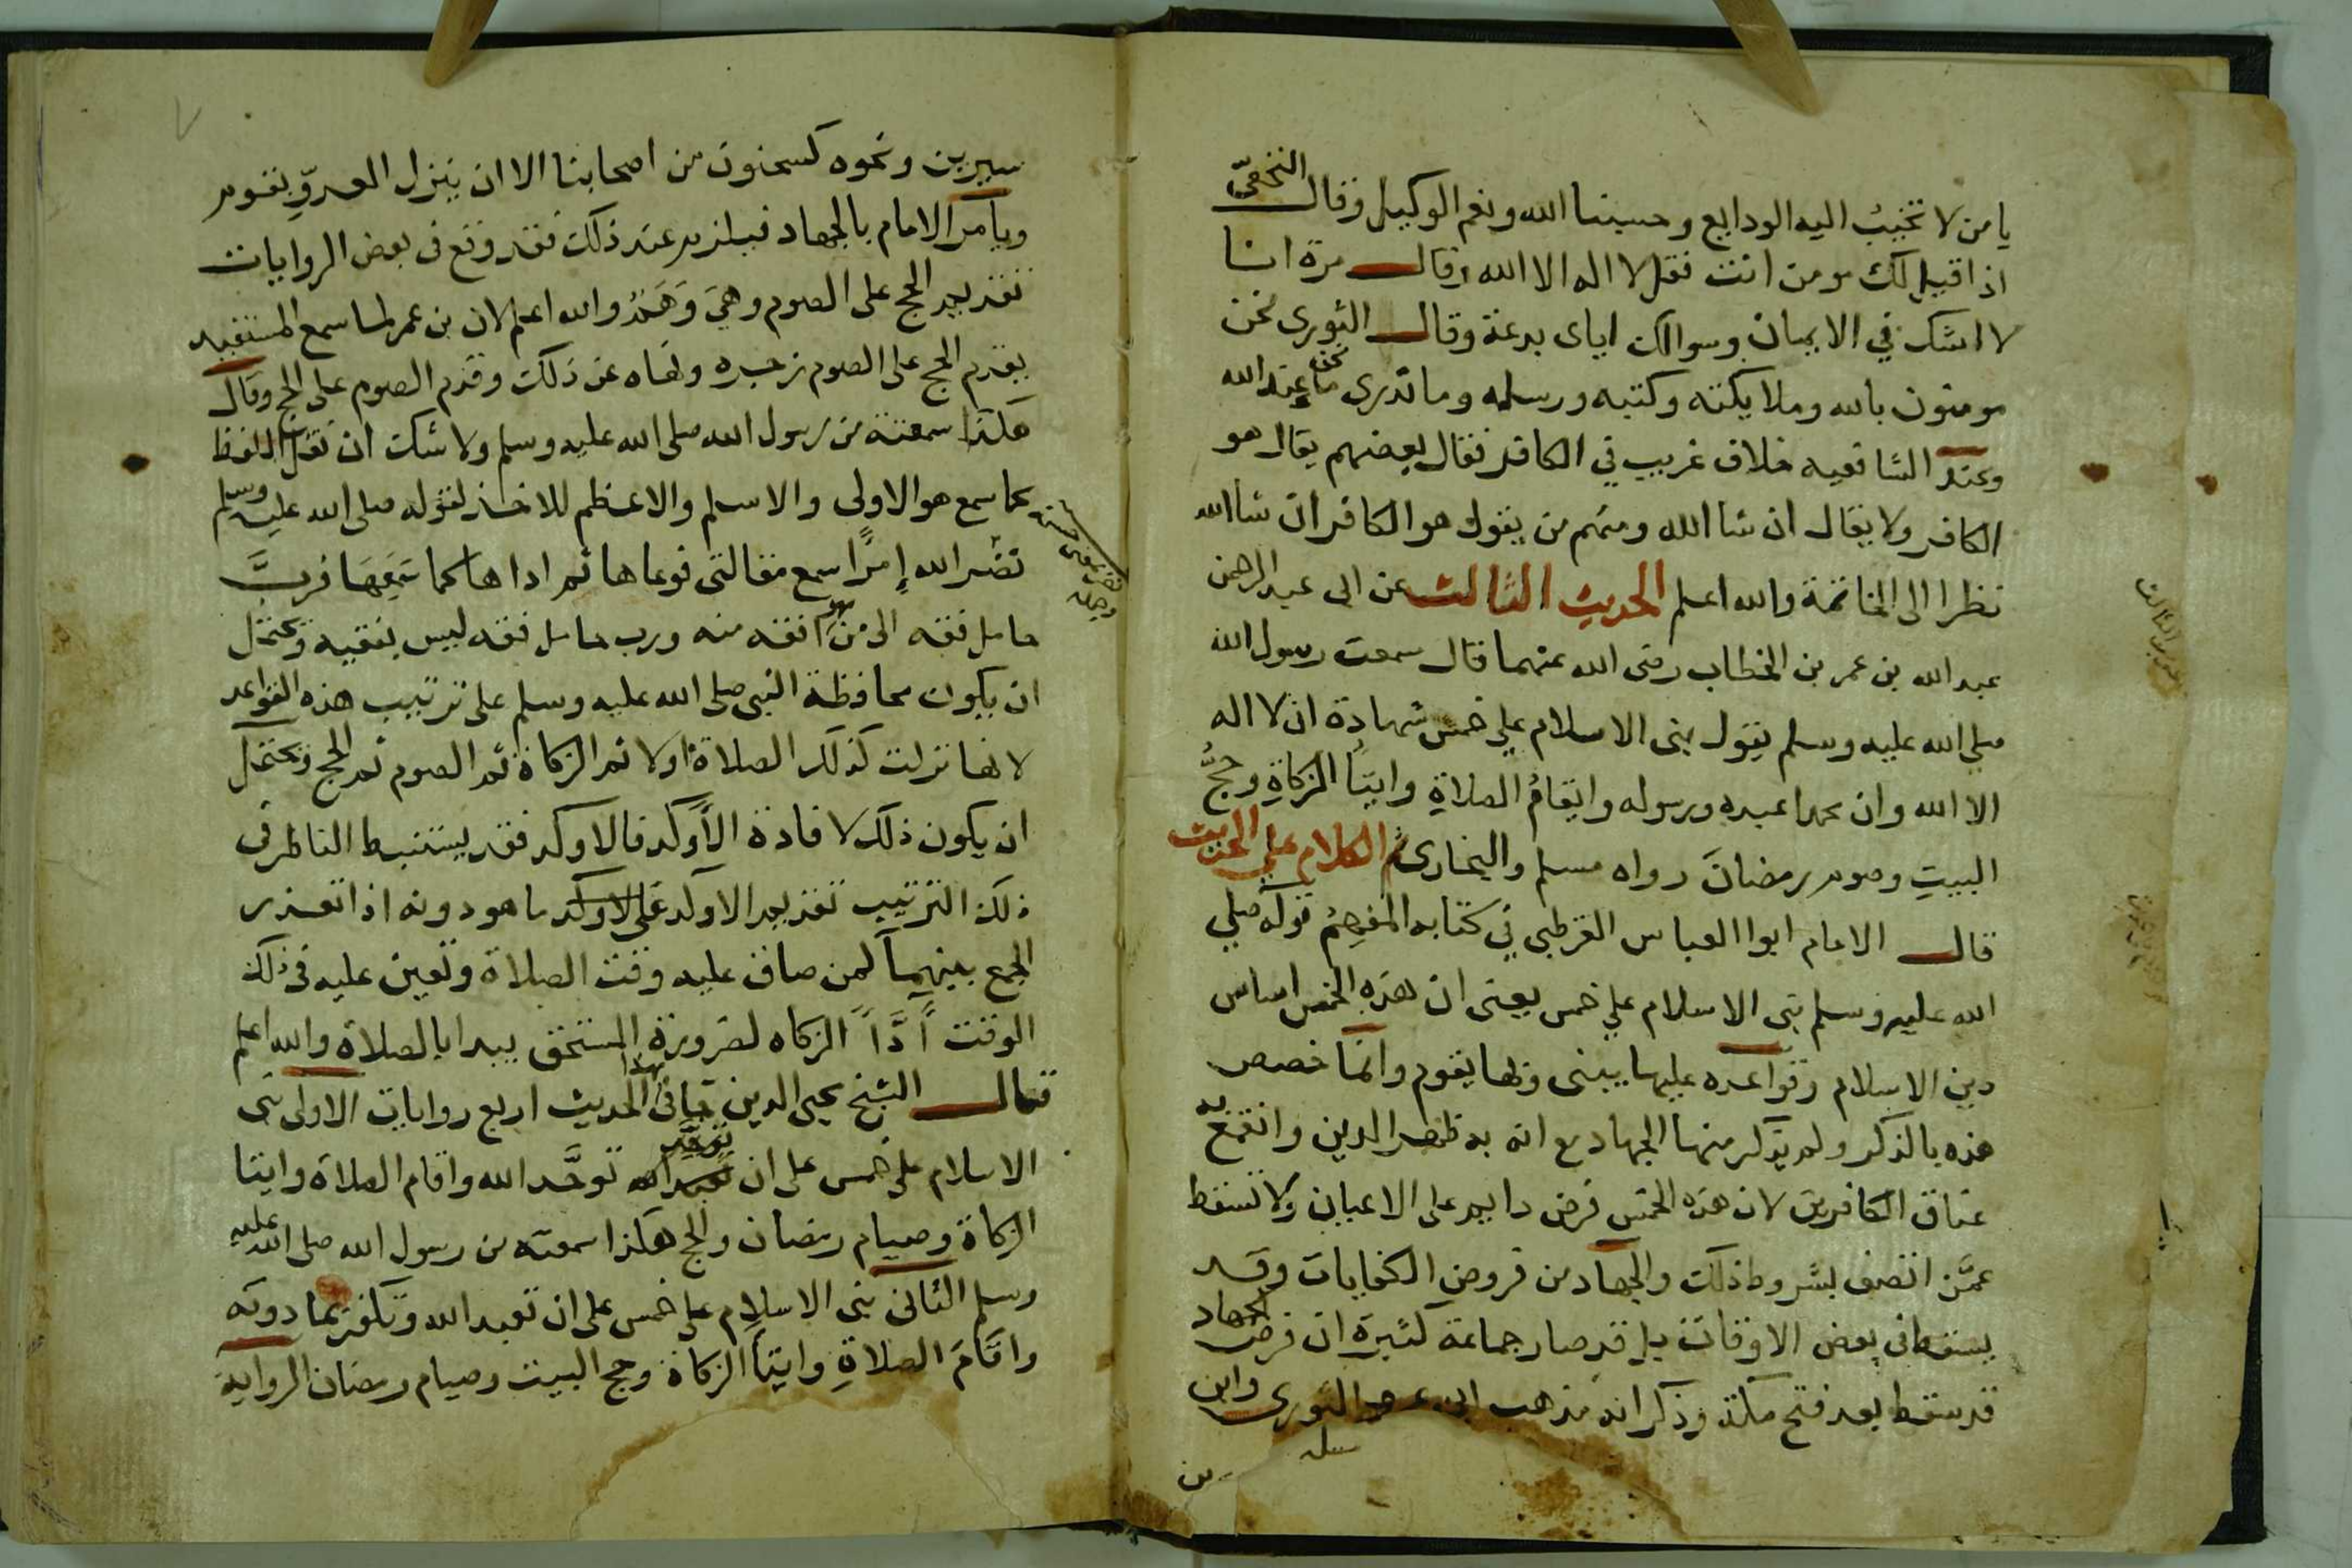 يا من لا تخيب اليه الودايع وحسبنا الله ونعم الوكيل وقال النخعيّ
اذا قيل لك مومن انت فقل لا اله الا الله وقال مرة انا
لا اشك في الايمان وسوالك اياى بدعة وقال الثورى نحن
مومنون بالله وملايكته وكتبه ورسله وما ندرى ما نحن عند الله
وعند الشافعيه خلاف غريب في الكافر فقال بعضهم يقال هو
الكافر ولا يقال ان شا الله ومنهم من يقول هو الكافر ان شا الله
نظرا الى الخاتمة والله اعلم الحديث الثالث عن ابى عبد الرحمن
عبد الله بن عمر بن الخطاب رضى الله عنهما قال سمعت رسول الله
صلي الله عليه وسلم يقول بنى الاسلام علي خمس شهادة ان لا اله
الا الله وان محمدا عبده ورسوله وايقامُ الصلاةِ وايتَاُ الزكاةِ وحجُّ
البيتِ وصوم رمضانَ رواه مسلم والبخارى ثم الكلام علي الحديث
قال الامام ابوا العباس القرطبي في كتابه المفهِمُ قوله صلي
الله عليه وسلم بنى الاسلام علي خمس يعنى ان هذه الخمس اساس
دين الاسلام وقواعده عليها يبنى وبها يقوم وانما خصص
هذه بالذكر ولم يذكر منها الجهاد مع انه به ظهر الدين وانقمع به
عناق الكافرين لان هذه الخمس فرض دايم على الاعيان ولا تسقط
عمَّن اتصف بشروط ذلك والجهاد من فروض الكفايات وقد
يسقط فى بعض الاوقات بل قد صار جماعة كثيرة ان فرض الجهاد
قد سقط بعد فتح مكة وذكر انه مذهب ابن عمر والثورى وابن
الحديث الثالث
سيرين ونحوه كسحنون من اصحابنا الا ان ينزل العدوّ بقوم
ويأمر الامام بالجهاد فيلزم عند ذلك فقد وقع فى بعض الروايات
تقديم الحج على الصوم وهيَ وَهَمٌ والله اعلم لان بن عمر لما سمع المستفيد
يقدم الحج على الصوم زجره ونهاه عن ذلك وقدم الصوم على الحج وقال
هكذا سمعته من رسول الله صلى الله عليه وسلم ولا شك ان نقل اللفظ
كما سمع هو الاولى والاسلم والاعظم للاخذ لقوله صلى الله عليه وسلم
نضّر الله إمرًا سمع مقالتى فوعاها ثم اداها كما سَمِعَهَا فربَّ
حامل فقه الى من هو افقه منه ورب حامل فقه ليس بفقيه ويحتمل
ان يكون محافظة النبى صلى الله عليه وسلم على ترتيب هذه القواعد
لانها نزلت كذلك الصلاة اولا ثم الزكاة ثم الصوم ثم الحج ويحتمل
ان يكون ذلك لافادة الأوكد فالاوكد فقد يستنبط الناظر فى
ذلك الترتيب تقديم الاوكد على الاوكد ما هو دونه اذا تعذر
الجمع بينهما كمن ضاق عليه وقت الصلاة وتعين عليه فى ذلك
الوقت أدَّاُ الزكاه لضرورة المستحق يبدا بالصلاة والله اعلم
قال الشيخ محيى الدين جا فى هذا الحديث اربع روايات الاولى بنى
الاسلام على خمس على ان توحَّد الله واقام الصلاة وايتا
الزكاة وصيام رمضان والحج هكذا سمعته من رسول الله صلى الله عليه
وسلم الثانى بنى الاسلام على خمس على ان تعبد الله وتكفر بما دونه
واقامَ الصلاةِ وايتأ الزكاة وحج البيت وصيام رمضان الرواية